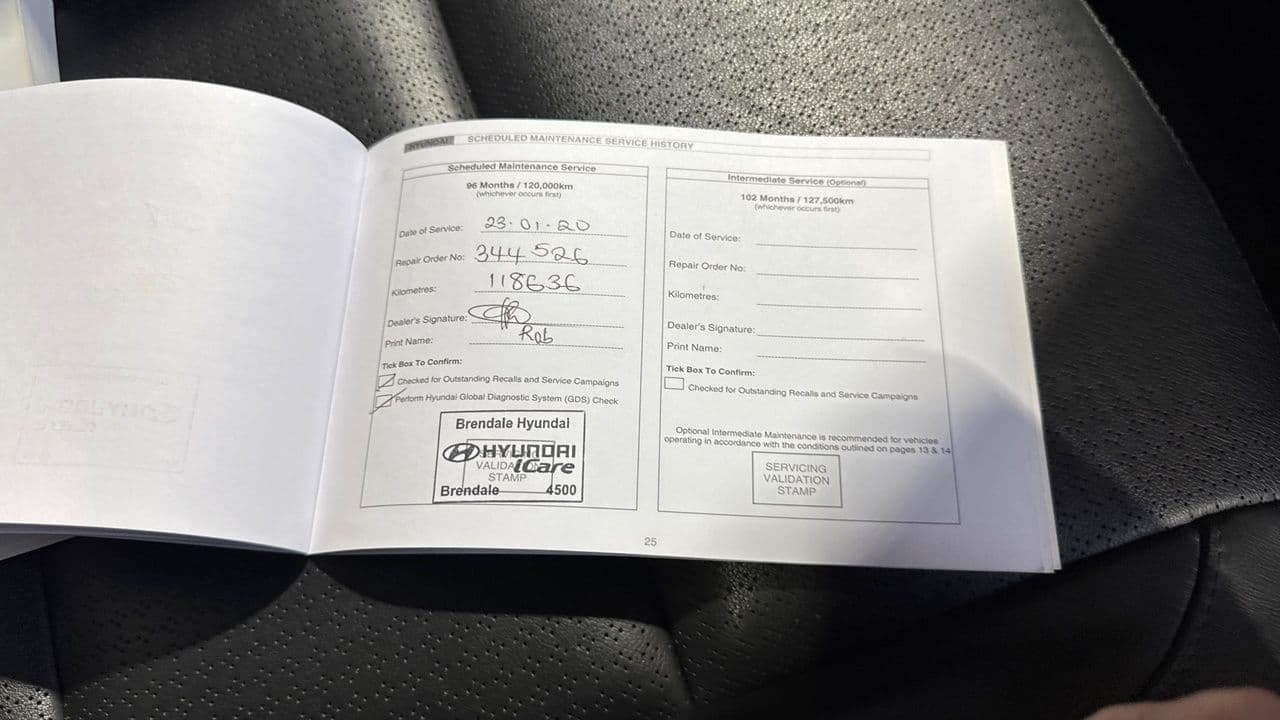 HYUNDAI SCHEDULED MAINTENANCE SERVICE HISTORY
Scheduled Maintenance Service
96 Months / 120,000km
(whichever occurs first)
Date of Service: 23·01·20
Repair Order No: 344526
Kilometres: 118636
Dealer's Signature:
Print Name: Rob
Tick Box To Confirm:
Checked for Outstanding Recalls and Service Campaigns
Perform Hyundai Global Diagnostic System (GDS) Check
Brendale Hyundai
HYUNDAI
iCare
VALIDATION
STAMP
Brendale 4500
Intermediate Service (Optional)
102 Months / 127,500km
(whichever occurs first)
Date of Service:
Repair Order No:
Kilometres:
Dealer's Signature:
Print Name:
Tick Box To Confirm:
Checked for Outstanding Recalls and Service Campaigns
Optional Intermediate Maintenance is recommended for vehicles
operating in accordance with the conditions outlined on pages 13 & 14
SERVICING
VALIDATION
STAMP
25